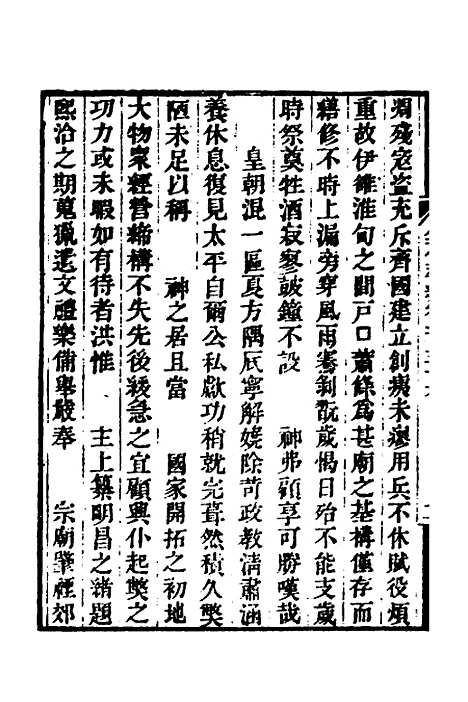 凋殘寇盜充斥齊國建立創痍未瘳用兵不休賦役煩
重故伊雒淮甸之間戶口蕭條爲甚廟之基構僅存而
繕修不時上漏旁穿風雨騫剝翫歲愒日殆不能支歲
時祭奠牲酒寂寥鼓鐘不設　　神弗顧享可勝嘆哉
皇朝混一區夏方隅底寧解嬈除苛政教淸肅涵
養休息復見太平自爾公私獻功稍就完葺然積久弊
陋未足以稱　　神之居且當　　國家開拓之初地
大物衆經營締構不失先後緩急之宜顧興仆起獘之
功力或未暇如有待者洪惟　　主上纂明昌之緒題
熙治之期蒐獵遺文禮樂備舉嚴奉　　宗廟肇禋郊